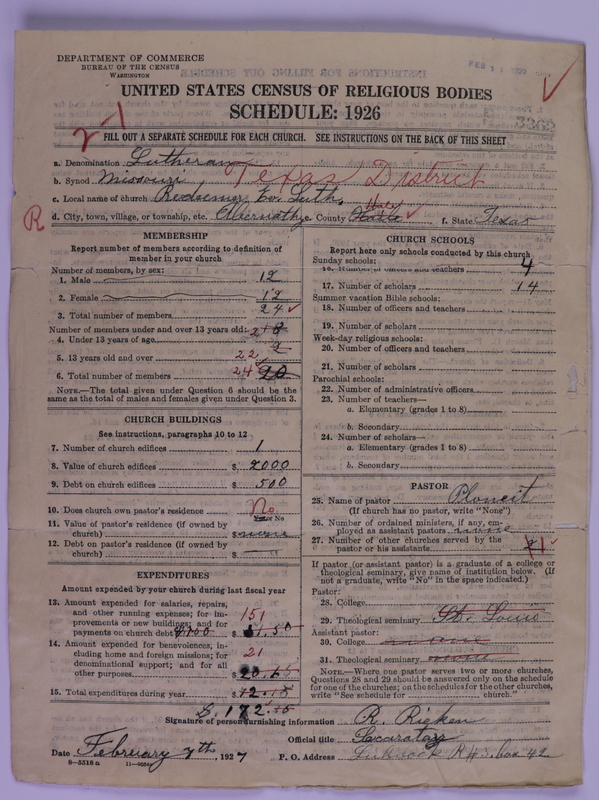 DEPARTMENT OF COMMERCE
BUREAU OF THE CENSUS
WASHINGTON
UNITED STATES CENSUS OF RELIGIOUS BODIES
SCHEDULE: 1926
FILL OUT A SEPARATE SCHEDULE FOR EACH CHURCH. SEE INSTRUCTIONS ON THE BACK OF THIS SHEET
a. Denomination Lutheran
b. Synod Missouri Texas District
c. Local name of church Redeemer Ev. Luth.
d. City, town, village, or township, etc. Abernathy e. County Hale f. State Texas
R
MEMBERSHIP
Report number of members according to definition of
member in your church
Number of members, by sex:
1. Male 12
2. Female 12
3. Total number of members 24
Number of members under and over 13 years old:
4. Under 13 years of age 2
5. 13 years old and over 22
6. Total number of members 24 20
NOTE.—The total given under Question 6 should be the
same as the total of males and females given under Question 3.
CHURCH BUILDINGS
See instructions, paragraphs 10 to 12
7. Number of church edifices 1
8. Value of church edifices $ 2000
9. Debt on church edifices $ 500
10. Does church own pastor's residence No
Yes or No
11. Value of pastor's residence (if owned by
church) $ none
12. Debt on pastor's residence (if owned by
church) $
EXPENDITURES
Amount expended by your church during last fiscal year
13. Amount expended for salaries, repairs,
and other running expenses; for im-
provements or new buildings; and for
payments on church debt $ 151
14. Amount expended for benevolences, in-
cluding home and foreign missions; for
denominational support; and for all
other purposes $ 21 20.65
15. Total expenditures during year $
$ 172.15
CHURCH SCHOOLS
Report here only schools conducted by this church
Sunday schools:
16. Number of officers and teachers 4
17. Number of scholars 14
Summer vacation Bible schools:
18. Number of officers and teachers
19. Number of scholars
Week-day religious schools:
20. Number of officers and teachers
21. Number of scholars
Parochial schools:
22. Number of administrative officers
23. Number of teachers—
a. Elementary (grades 1 to 8)
b. Secondary
24. Number of scholars—
a. Elementary (grades 1 to 8)
b. Secondary
PASTOR
25. Name of pastor
(If church has no pastor, write "None")
26. Number of ordained ministers, if any, em-
ployed as assistant pastors none
27. Number of other churches served by the
pastor or his assistants 1
If pastor (or assistant pastor) is a graduate of a college or
theological seminary, give name of institution below. (If
not a graduate, write "No" in the space indicated.)
Pastor:
28. College
29. Theological seminary St. Louis
Assistant pastor:
30. College none
31. Theological seminary none
NOTE.—Where one pastor serves two or more churches,
Questions 28 and 29 should be answered only on the schedule
for one of the churches; on the schedules for the other churches,
write "See schedule for church."
Signature of person furnishing information R. Rieken
Official title Secaratary
Date February 7th, 1927 P. O. Address Lubbock R#3, box 42
8-5518 a